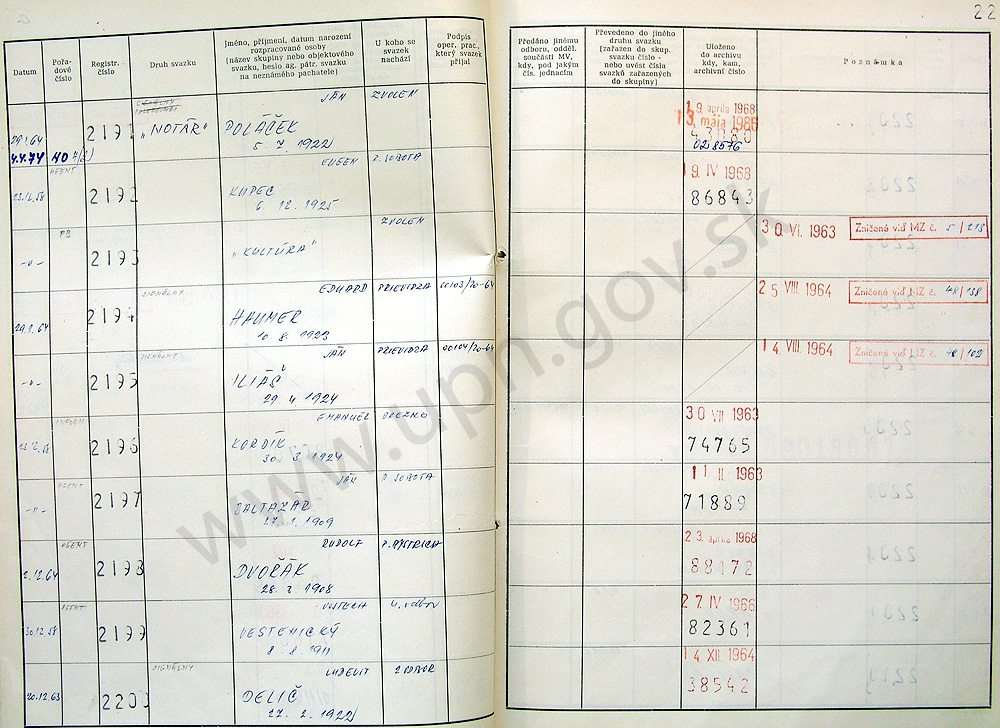 22
Datum
Pořa-
dové
číslo
Registr.
číslo
Druh svazku
Jméno, příjmení, datum narození
rozpracované osoby
(název skupiny nebo objektového
svazku, heslo ag. pátr. svazku
na neznámého pachatele)
U koho se
svazek
nachází
Podpis
oper. prac.,
který svazek
přijal
Předáno jinému
odboru, odděl.
součásti MV,
kdy, pod jakým
čís. jednacím
Převedeno do jiného
druhu svazku
(zařazen do skup.
svazku číslo -
nebo uvést čísla
svazků zařazených
do skupiny)
Uloženo
do archivu
kdy, kam,
archivní číslo
Poznámka
JÁN ZVOLEN
29.1.64 2191 „NOTÁR" POLÁČEK
5 7. 1922
4.4.74
19. apríla 1968
13. mája 1986
43080
028576
AGENT EUGEN R. SOBOTA
23.12.58 2192 KUPEC
6 12. 1925
19. IV 1968
86843
PB ZVOLEN
-"- 2193 „KULTÚRA"
30. VI. 1963 Zničené viď MZ č. 5/213
SIGNÁLNY EDUARD PRIEVIDZA 00103/20-64
29.1.64 2194 HAUMER
10. 8. 1923
25 VIII. 1964 Zničené viď MZ č. 48/138
SIGNÁLNY JÁN PRIEVIDZA 00104/20-64
-"- 2195 ILIÁŠ
29. 4 1924
14. VIII. 1964 Zničené viď MZ č. 48/102
INFORM EMANUEL BREZNO
23.12.58 2196 KORDÍK
30. 3 1924
30 VIII 1963
74765
AGENT JÁN R. SOBOTA
-"- 2197 BALTAZÁR
27. 1. 1909
11 II. 1963
71889
AGENT RUDOLF B. BYSTRICA
2.12.64 2198 DVOŘÁK
28. 3. 1908
23. apríla 1968
88172
AGENT VOJTECH 4. odbor
30.12.58 2199 VESTENICKÝ
8. 8 1911
27. IV 1966
82361
SIGNÁLNY ĽUDEVIT 2 ODBOR
20.12.63 2200 DELIČ
27. 2. 1922
14 XII. 1964
38542
www.upn.gov.sk